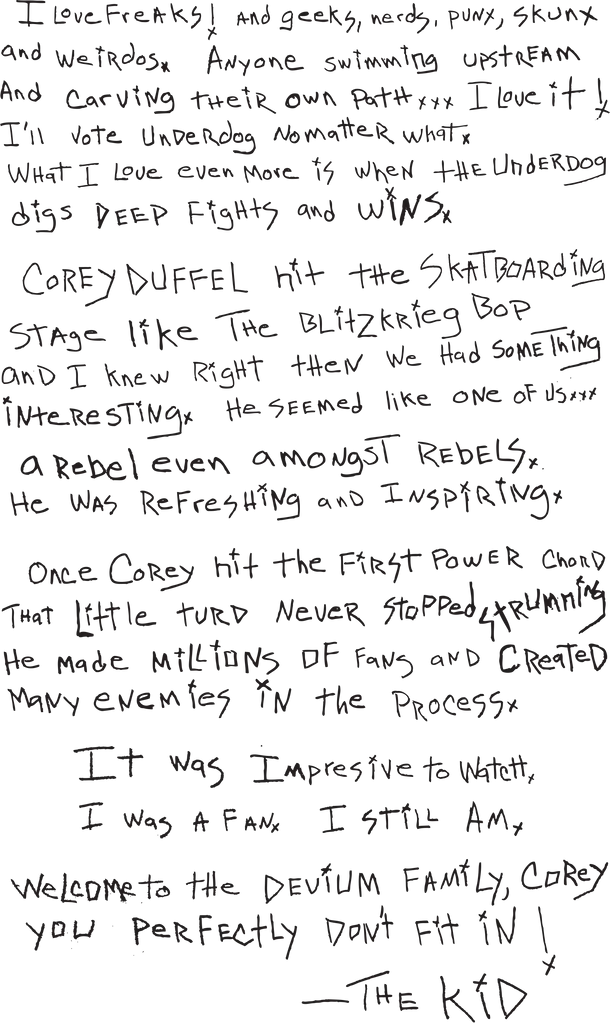 I Love Freaks! And geeks, nerds, punx, skunx
and weirdosx Anyone swimming upstream
And carving their own path xxx I love it!
I'll vote underdog no matter whatx
What I love even more is when the underdog
digs DEEP Fights and WINSx
COREY DUFFEL hit the SKATBOARding
STAge like THE BLitZKRieg BOP
and I knew Right then we Had SOMETHing
interestingx He seemed like one of us xxx
a Rebel even amongst REBELSx
He was Refreshing and Inspiringx
Once Corey hit the First Power Chord
That Little turd never stopped strumming
He made Millions of fans and Created
Many enemies in the Processx
It was Impresive to watchx
I was a fanx I still Amx
Welcome to the DEVIUM FAMiLY, COREY
you Perfectly Don't Fit in!
—THE KiD